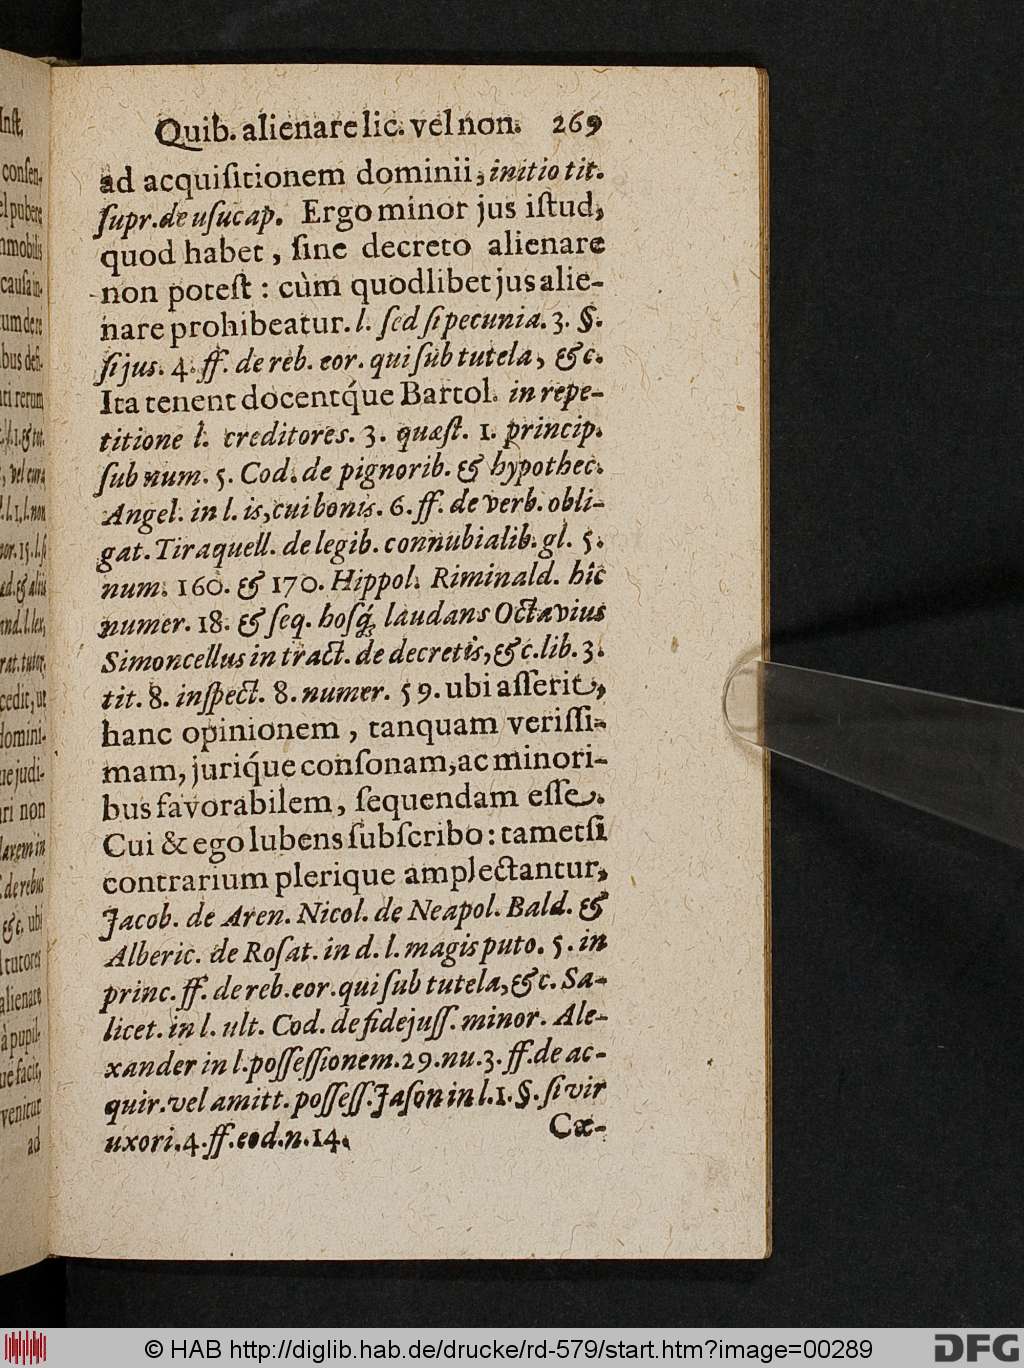 Quib. alienare lic. vel non. 269
ad acquiſitionem dominii, initio tit.
ſupr. de uſucap. Ergo minor jus iſtud,
quod habet, ſine decreto alienare
non poteſt : cùm quodlibet jus alie-
nare prohibeatur. l. ſed ſi pecunia. 3. §.
ſi jus. 4. ff. de reb. eor. qui ſub tutela, &c.
Ita tenent docentq́ue Bartol. in repe-
titione l. creditores. 3. quæſt. 1. princip.
ſub num. 5. Cod. de pignorib. & hypothec.
Angel. in l. is, cui bonis. 6. ff. de verb. obli-
gat. Tiraquell. de legib. connubialib. gl. 5.
num. 160. & 170. Hippol. Riminald. hîc
numer. 18. & ſeq. hoſq́; laudans Octavius
Simoncellus in tract. de decretis, &c. lib. 3.
tit. 8. inſpect. 8. numer. 59. ubi aſſerit,
hanc opinionem, tanquam veriſſi-
mam, juriq́ue conſonam, ac minori-
bus favorabilem, ſequendam eſſe.
Cui & ego lubens ſubſcribo: tametſi
contrarium plerique amplectantur,
Jacob. de Aren. Nicol. de Neapol. Bald. &
Alberic. de Roſat. in d. l. magis puto. 5. in
princ. ff. de reb. eor. qui ſub tutela, &c. Sa-
licet. in l. ult. Cod. de fidejuſſ. minor. Ale-
xander in l. poſſeſſionem. 29. nu. 3. ff. de ac-
quir. vel amitt. poſſeſſ. Jaſon in l. 1. §. ſi vir
uxori. 4. ff. eod. n. 14.
Cæ-
© HAB http://diglib.hab.de/drucke/rd-579/start.htm?image=00289
DFG